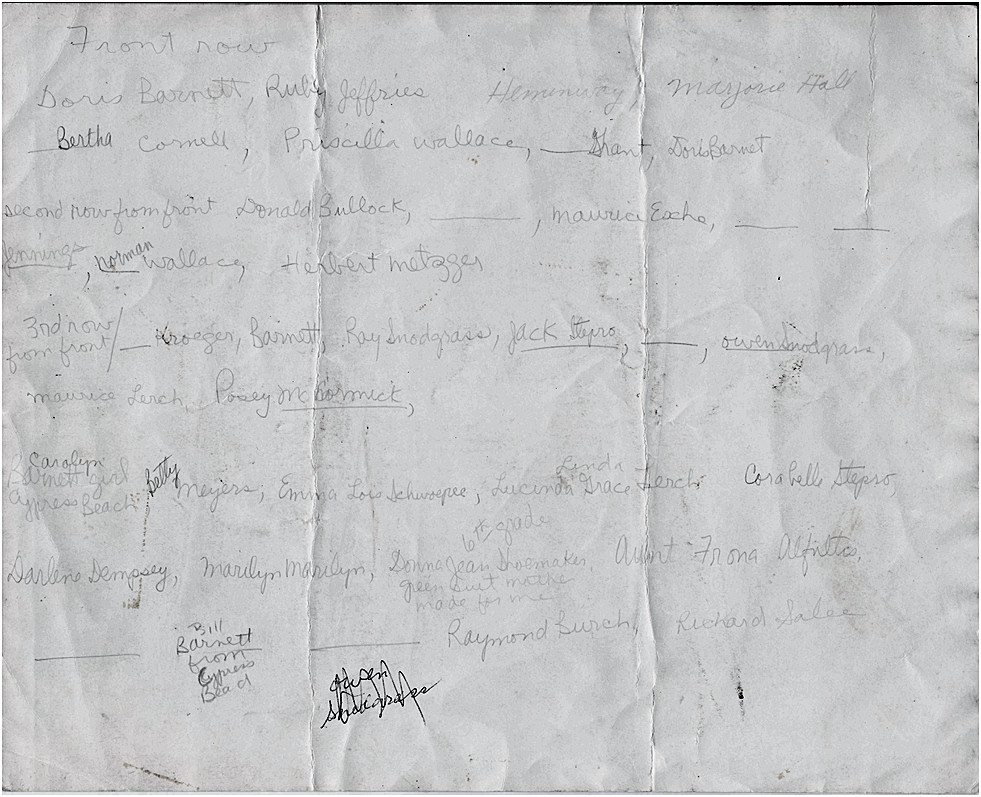 Front row
Doris Barnett, Ruby Jeffries Hemenway, Marjorie Hall
____ Bertha Cornell, Priscilla Wallace, ____ Grant, Doris Barnet
second row from front Donald Bullock, ____, Maurice Esche, ____ ____
Jennings, Norman Wallace, Herbert Metzger
3rd row from front/ ____ Kroeger, Barnett, Ray Snodgrass, Jack Stepro, ____, Owen Snodgrass,
Maurice Lerch, Posey McCormick,
Carolyn
Barnett girl
Cypress Beach
Betty Meyers, Emma Lois Schwoepee, Lucinda Grace Lerch Corabelle Stepro,
Linda
6th grade
Darlene Dempsey, Marilyn Marilyn, Donna Jean Shoemaker, Aunt Frona
green suit mother
made for me
____ Bill
Barnett
from
Cypress
Bead
____ Raymond Burch, Richard Salee
Owen
Snodgrass